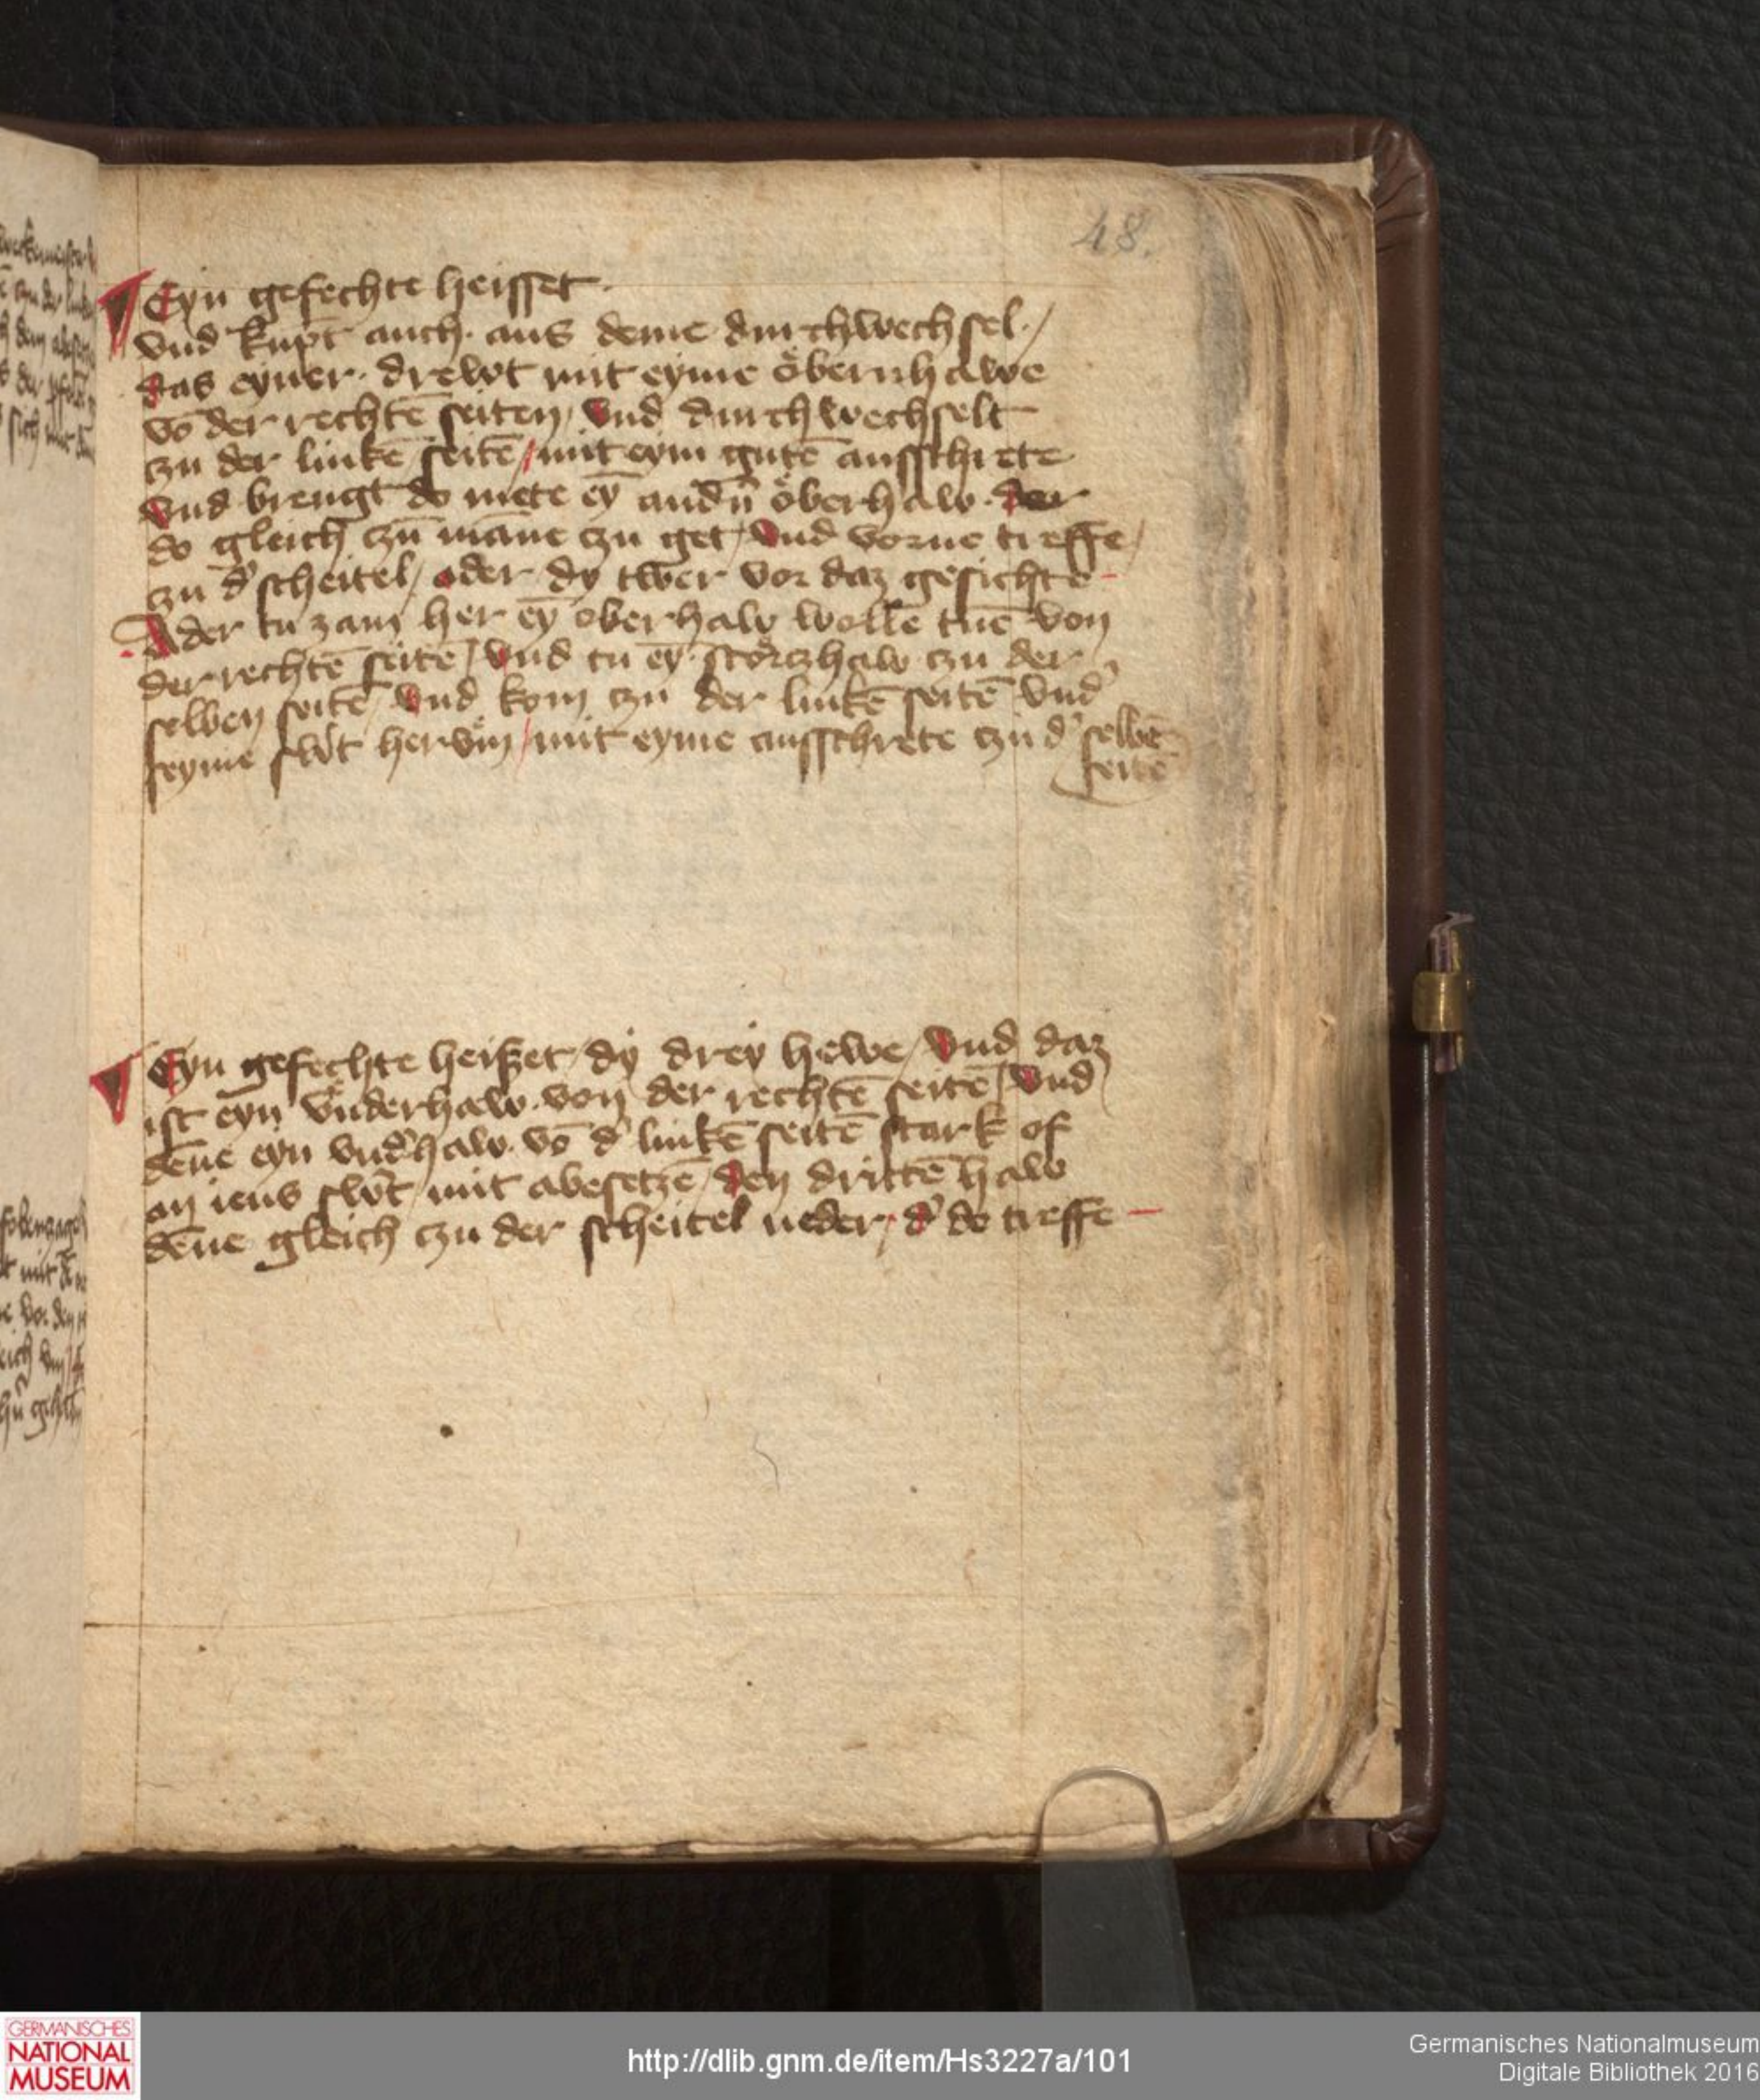 48.
Eyn gefechte heisset ·
vnd kūpt auch · aus deme durchwechsel · /
das eyner · drewt mit eyme öbernhawe
vō der rechtē seiten / vnd durchwechselt
czu der linkē seitē / mit eym gutē ausschrete
vnd brengt do mete eȳ andn̄ öberhaw · der
do gleich czū māne czu get / vnd vorne treffe /
czu d' scheitel / oder dy twer vor daz gesichte –
Ader tu zam her eȳ oberhaw wolle tuē von
der rechtē seitē / vnd tu eȳ störczhaw czu der
selben seitē / vnd kom czu der linkē seitē vnd'
seyme sw't hervm̄ / mit eyme ausschrete czu d' selbē
seitē
Eyn gefechte heißet / dy drey hewe / vnd daz
ist eyn vnderhaw · von der rechtē seitē / vnd
dēne eyn vnd'haw · vō d' linkē seitē stark of
an iens sw't / mit abesetzē / den drittē haw
dēne gleich czu der scheitel neder / d' do treffe –
GERMANISCHES
NATIONAL
MUSEUM
http://dlib.gnm.de/item/Hs3227a/101
Germanisches Nationalmuseum
Digitale Bibliothek 2016